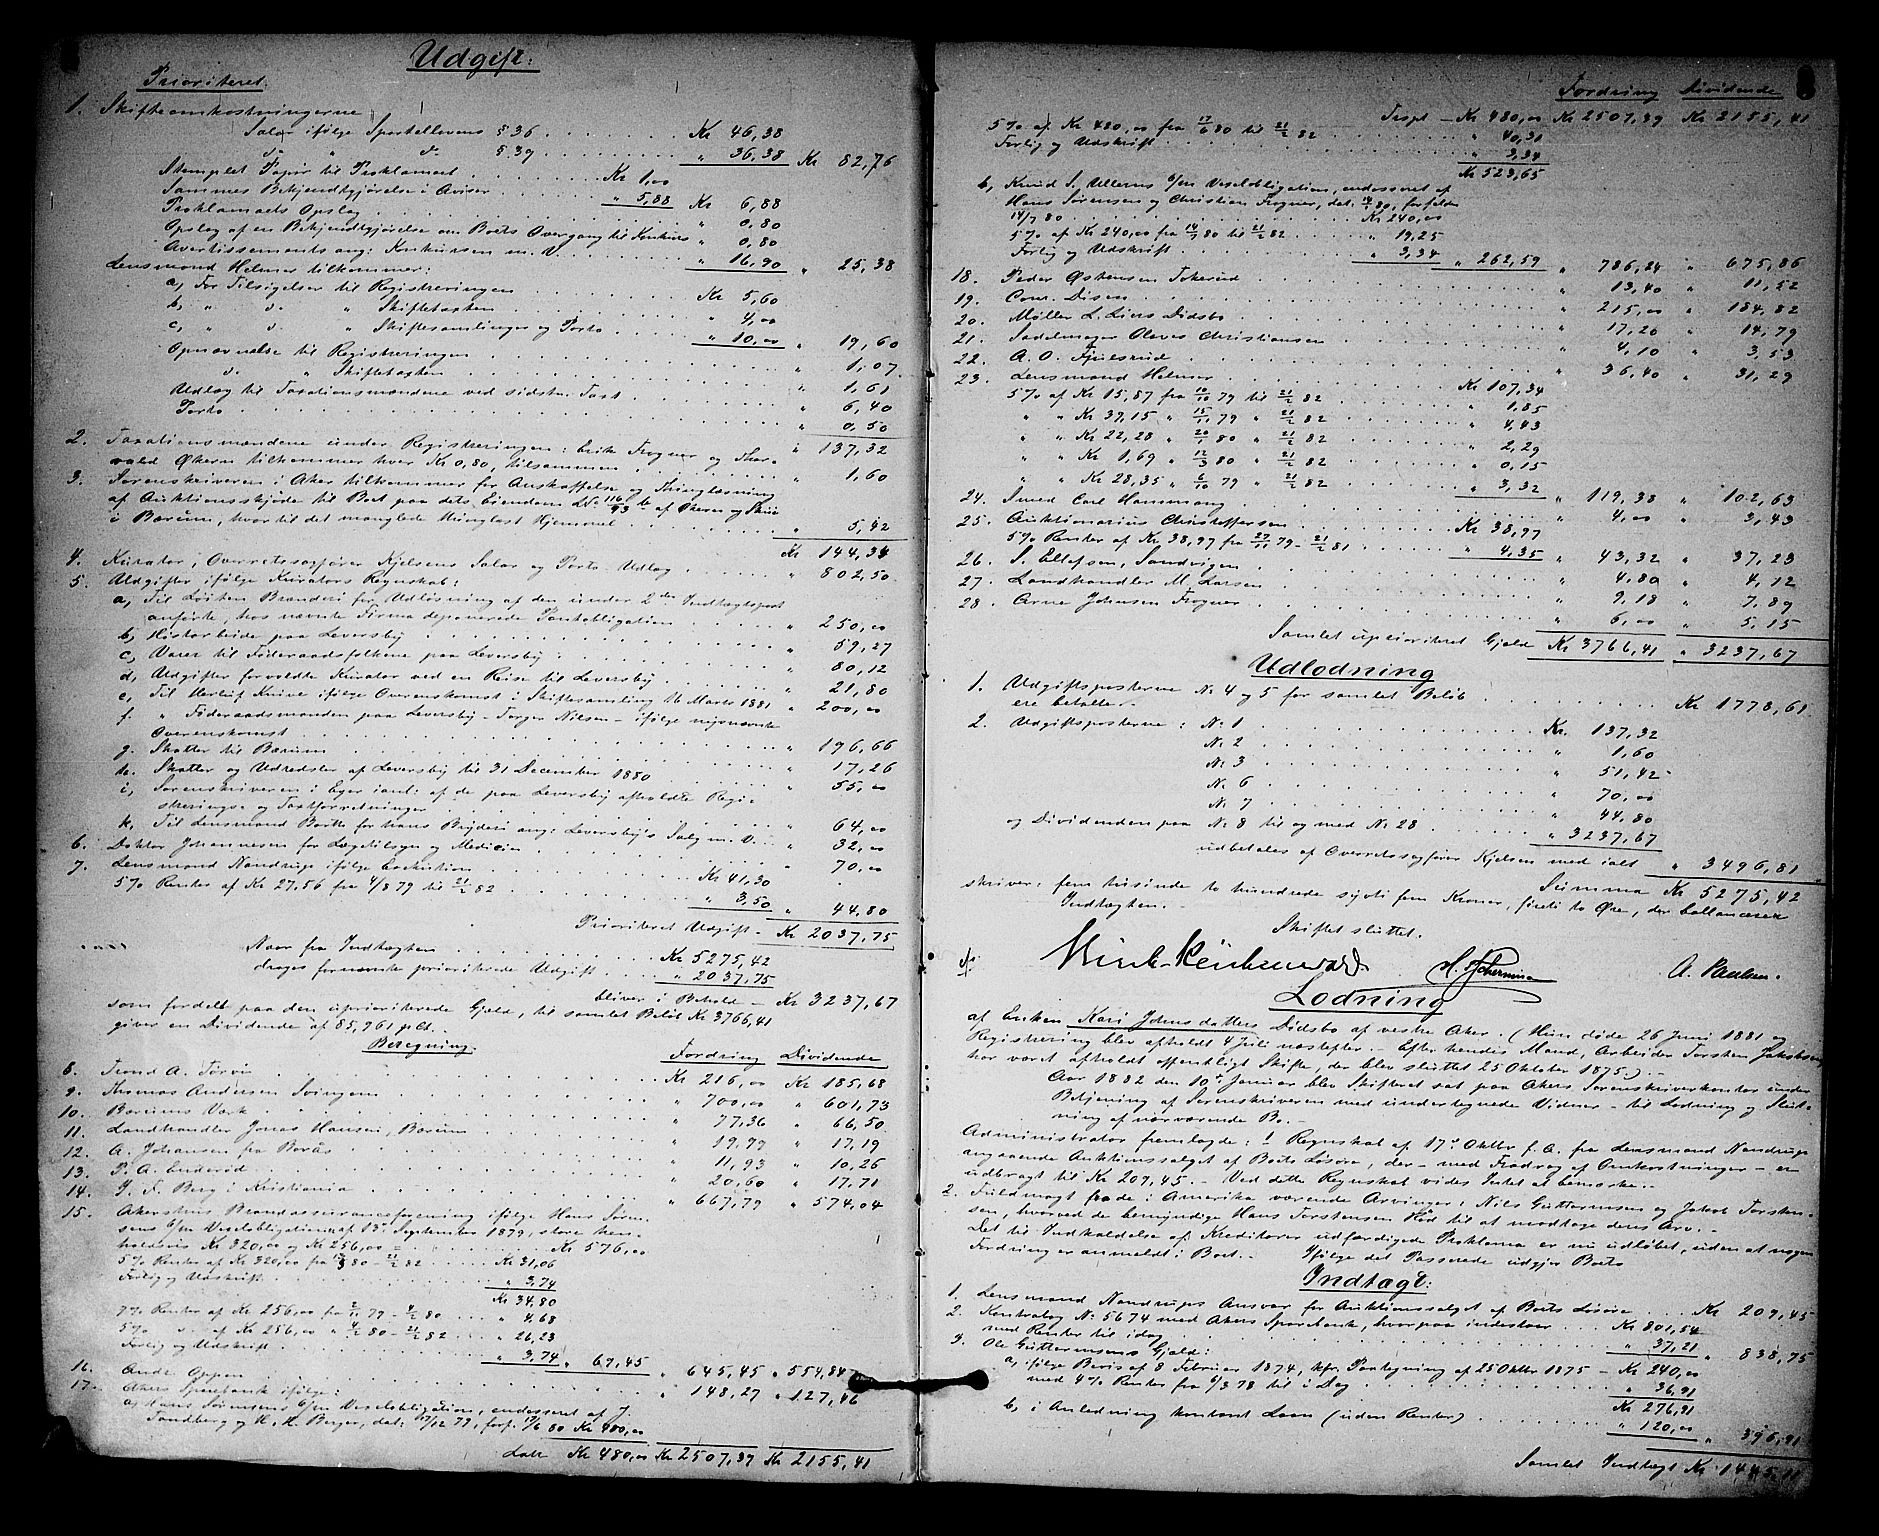 Udgift:
Prioriteret.
1. Skifteomkostningerne
Salær ifølge Sportelloven § 36 Kr 46,38
do " do § 39 " 36,38 Kr 82,76
Stemplet Papir til Proklamaet Kr 1,00
Sammes Bekjendtgjørelse i Aviser " 5,88 Kr 6,88
Proklamaets Opslag " 0,80
Opslag af en Bekjendtgjørelse om Boets Overgang til Konkurs " 0,80
Avertissements ang: Konkursen m. V. " 16,90 " 25,38
Lensmand Helmer tilkommer:
a, For Tilsigelser til Registreringen Kr 5,60
b, " do " Skiftetaxten " 4,00
c, " do " Skiftesamlinger og Porto " 10,00 " 19,60
Opnævnelse til Registreringen " 1,07
do " Skiftetaxten " 1,61
Udlæg til Taxationsmændene ved sidstn. Taxt " 6,40
Porto " 0,50
" 137,32
2. Taxationsmændene under Registreringen: Erik Frogner og Thor-
vald Økern tilkommer hver Kr 0,80, tilsammen " 1,60
3. Sorenskriveren i Aker tilkommer for Anskaffelse og Thinglæsning
af Auktionsskjøde til Boet paa dets Eiendom af Økern og Skui
i Bærum, hvortil det manglede thinglæst Hjemmel " 5,42
Kr 144,34
4. Kurator, Overretssagfører Kjelsens Salær og Porto-Udlæg " 802,50
5. Udgifter ifølge Kurators Regnskab:
a, Til Løiten Brænderi for Udløsning af den under 2den Indtægtspost
anførte, hos nævnte Firma deponerede Pantobligation " 250,00
b, Histarbeide paa Leversby " 59,27
c, Varer til Føderaadsfolkene paa Leversby " 80,12
d, Udgifter forvoldte Kurator ved en Reise til Leversby " 21,80
e, Til Herluf Knive ifølge Overenskomst i Skiftesamling 16 Marts 1881 " 200,00
f. " Føderaadsmanden paa Leversby - Torger Nilsen - ifølge nysnævnte
Overenskomst " 196,66
g. Skatter til Bærum " 17,26
h. Skatter og Udredsler af Leversby til 31 December 1880 " 55,00
i, Sorenskriveren i Eger ianl. af de paa Leversby afholdte Regi-
strerings- og Taxtforretninger " 64,00
k, Til Lensmand Borths for hans Bryderi ang: Leversby's Salg m. V. " 32,00
6. Doktor Johannesen for Lægetilsyn og Medicin " 70,00
7. Lensmand Nandrup ifølge Exekution Kr 41,30
5% Renter af Kr 27,56 fra 4/8 79 til 21/2 82 " 3,50 " 44,80
Prioriteret Udgift - Kr 2037,75
Naar fra Indtægten Kr 5275,42
drages fornævnte prioriterede Udgift " 2037,75
bliver i Behold - Kr 3237,67
som fordelt paa den uprioriterede Gjæld, til samlet Beløb Kr 3766,41
giver en Dividende af 85,961 pCt.
Beregning:
Fordring Dividende
8. Trond A. Torvin Kr 216,00 Kr 185,68
9. Thomas Andersen Svingen " 700,00 " 601,73
10. Bærums Værk " 77,36 " 66,50
11. Landhandler Jonas Hansen, Bærum " 19,99 " 17,19
12. A. Johansen fra Borås " 11,93 " 10,26
13. P. A. Enderød " 20,60 " 17,71
14. J. F. Berg i Kristiania " 667,79 " 574,04
15. Akershus Brandassuranceforening ifølge Hans Søren-
sens 6/m Vexelobligationer af 13de September 1879, store hen-
holdsvis Kr 320,00 og Kr 256,00 = Kr 576,00
5% Renter af Kr 320,00 fra 13/3 80 - 21/2 82 Kr 31,06
Forlig og Udskrift " 3,74
Kr 34,80
7% Renter af Kr 256,00 fra 2/11 79 - 4/2 80 " 4,68
5% do af Kr 256,00 " 4/2 80 - 21/2 82 " 26,23
Forlig og Udskrift " 3,74 " 69,45 " 645,45 " 554,84
16. Ande Oppen " 148,27 " 127,46
17. Akers Sparebank ifølge:
a, Hans Sørensens 6/m Vexelobligation, endosseret af J.
Sandberg og H. H. Berger, dat: 17/12 79, forf. 17/6 80 Kr 480,00
Latr Kr 480,00 Kr 2507,39 Kr 2155,41
Fordring Dividende
Trspt - Kr 480,00 Kr 2507,39 Kr 2155,41
5% af Kr 480,00 fra 17/6 80 til 21/2 82 " 40,31
Forlig og Udskrift " 3,34
Kr 523,65
b, Knud S. Ullerns 6/m Vexelobligation, endosseret af
Hans Sørensen og Christian Frogner, dat: 14/1 80, forfalden
14/7 80 Kr 240,00
5% af Kr 240,00 fra 14/7 80 til 21/2 82 " 19,25
Forlig og Udskrift " 3,34 " 262,59 " 786,24 " 675,86
18. Peder Østensen Tokerud " 13,40 " 11,52
19. Com. Disen " 215,00 " 184,82
20. Møller L. Liens Dødsbo " 17,20 " 14,79
21. Sadelmager Olaves Christiansen " 4,10 " 3,53
22. A. O. Fjulsrud " 36,40 " 31,29
23. Lensmand Helmer Kr 107,34
5% af Kr 15,87 fra 10/10 79 til 21/2 82 " 1,85
" " Kr 37,15 " 15/11 79 " 21/2 82 " 4,43
" " Kr 22,28 " 20/1 80 " 21/2 82 " 2,29
" " Kr 1,69 " 12/3 80 " 21/2 82 " 0,15
" " Kr 28,35 " 6/10 79 " 21/2 82 " 3,32 " 119,38 " 102,63
24. Smed Carl Hansmang " 4,00 " 3,43
25. Auktionarius Christoffersen Kr 38,97
5% Renter af Kr 38,97 fra 27/11 79 - 21/2 81 " 4,35 " 43,32 " 37,23
26. S. Ellefsen, Sandvigen " 4,80 " 4,12
27. Landhandler M. Larsen " 9,18 " 7,89
28. Arne Johnsen Frogner " 6,00 " 5,15
Samlet uprioriteret Gjæld Kr 3766,41 " 3237,67
Udlodning
1. Udgiftsposterne No 4 og 5 for samlet Beløb Kr 1778,61
ere betalte.
2. Udgiftsposterne: No 1 Kr. 137,32
No 2 " 1,60
No 3 " 5,42
No 6 " 70,00
No 7 " 44,80
og Dividenden paa No 8 til og med No 28 " 3237,67
udbetales af Overretssagfører Kjelsen med ialt " 3496,81
Summa Kr 5275,42
skriver: fem tusinde to hundrede sytti fem Kroner, firti to Øre, der ballancerer
Indtægten.
Skiftet sluttet.
A. Paulsen.
Lodning
af Enken Kari Johnsdatters Dødsbo af vestre Aker. (Hun døde 26 Juni 1881 og
Registrering blev afholdt 4 Juli næstefter. - Efter hendes Mand, Arbeider Torsten Jakobsen
har været afholdt offentligt Skifte, der blev sluttet 25 Oktober 1875.) -
Aar 1882 den 10de Januar blev Skifteret sat paa Akers Sorenskriverkontor under
Betjening af Sorenskriveren med undertegnede Vidner - til Lodning og Slut-
ning af nærværende Bo. -
Administrator fremlagde: 1 Regnskab af 17de Oktbr f. A. fra Lensmand Nandrup
angaaende Auktionssalget af Boets Løsøre, der - med Fradrag af Omkostninger - er
udbragt til Kr 209,45. - Ved dette Regnskab vides Intet at bemærke. -
2. Fuldmagt fra de i Amerika værende Arvinger, Nils Guttormsen og Jakob Torsten-
sen, hvorved de bemyndige Hans Torstensen Hød til at modtage deres Arv. -
Det til Indkaldelse af Kreditorer udfærdigede Proklama er nu udløbet, uden at nogen
Fordring er anmeldt i Boet. - Ifølge det Passerede udgjør Boets
Indtægt:
1. Lensmand Nandrups Ansvar for Auktionssalget af Boets Løsøre Kr 209,45
2. Kontrabog No 5674 med Akers Sparebank, hvorpaa indestaar Kr 801,54
med Renter til idag " 37,21 " 838,75
3. Ole Guttormsens Gjæld:
a, ifølge Bevis af 8 Februar 1874, kfr. Paategning af 25 Oktbr 1875 - Kr 240,00
med 4% Renter fra 6/3 78 til i Dag " 36,91
Kr 276,91
b, i Anledning kontant Laan (uden Renter) " 120,00 " 396,91
Samlet Indtægt Kr 1445,11